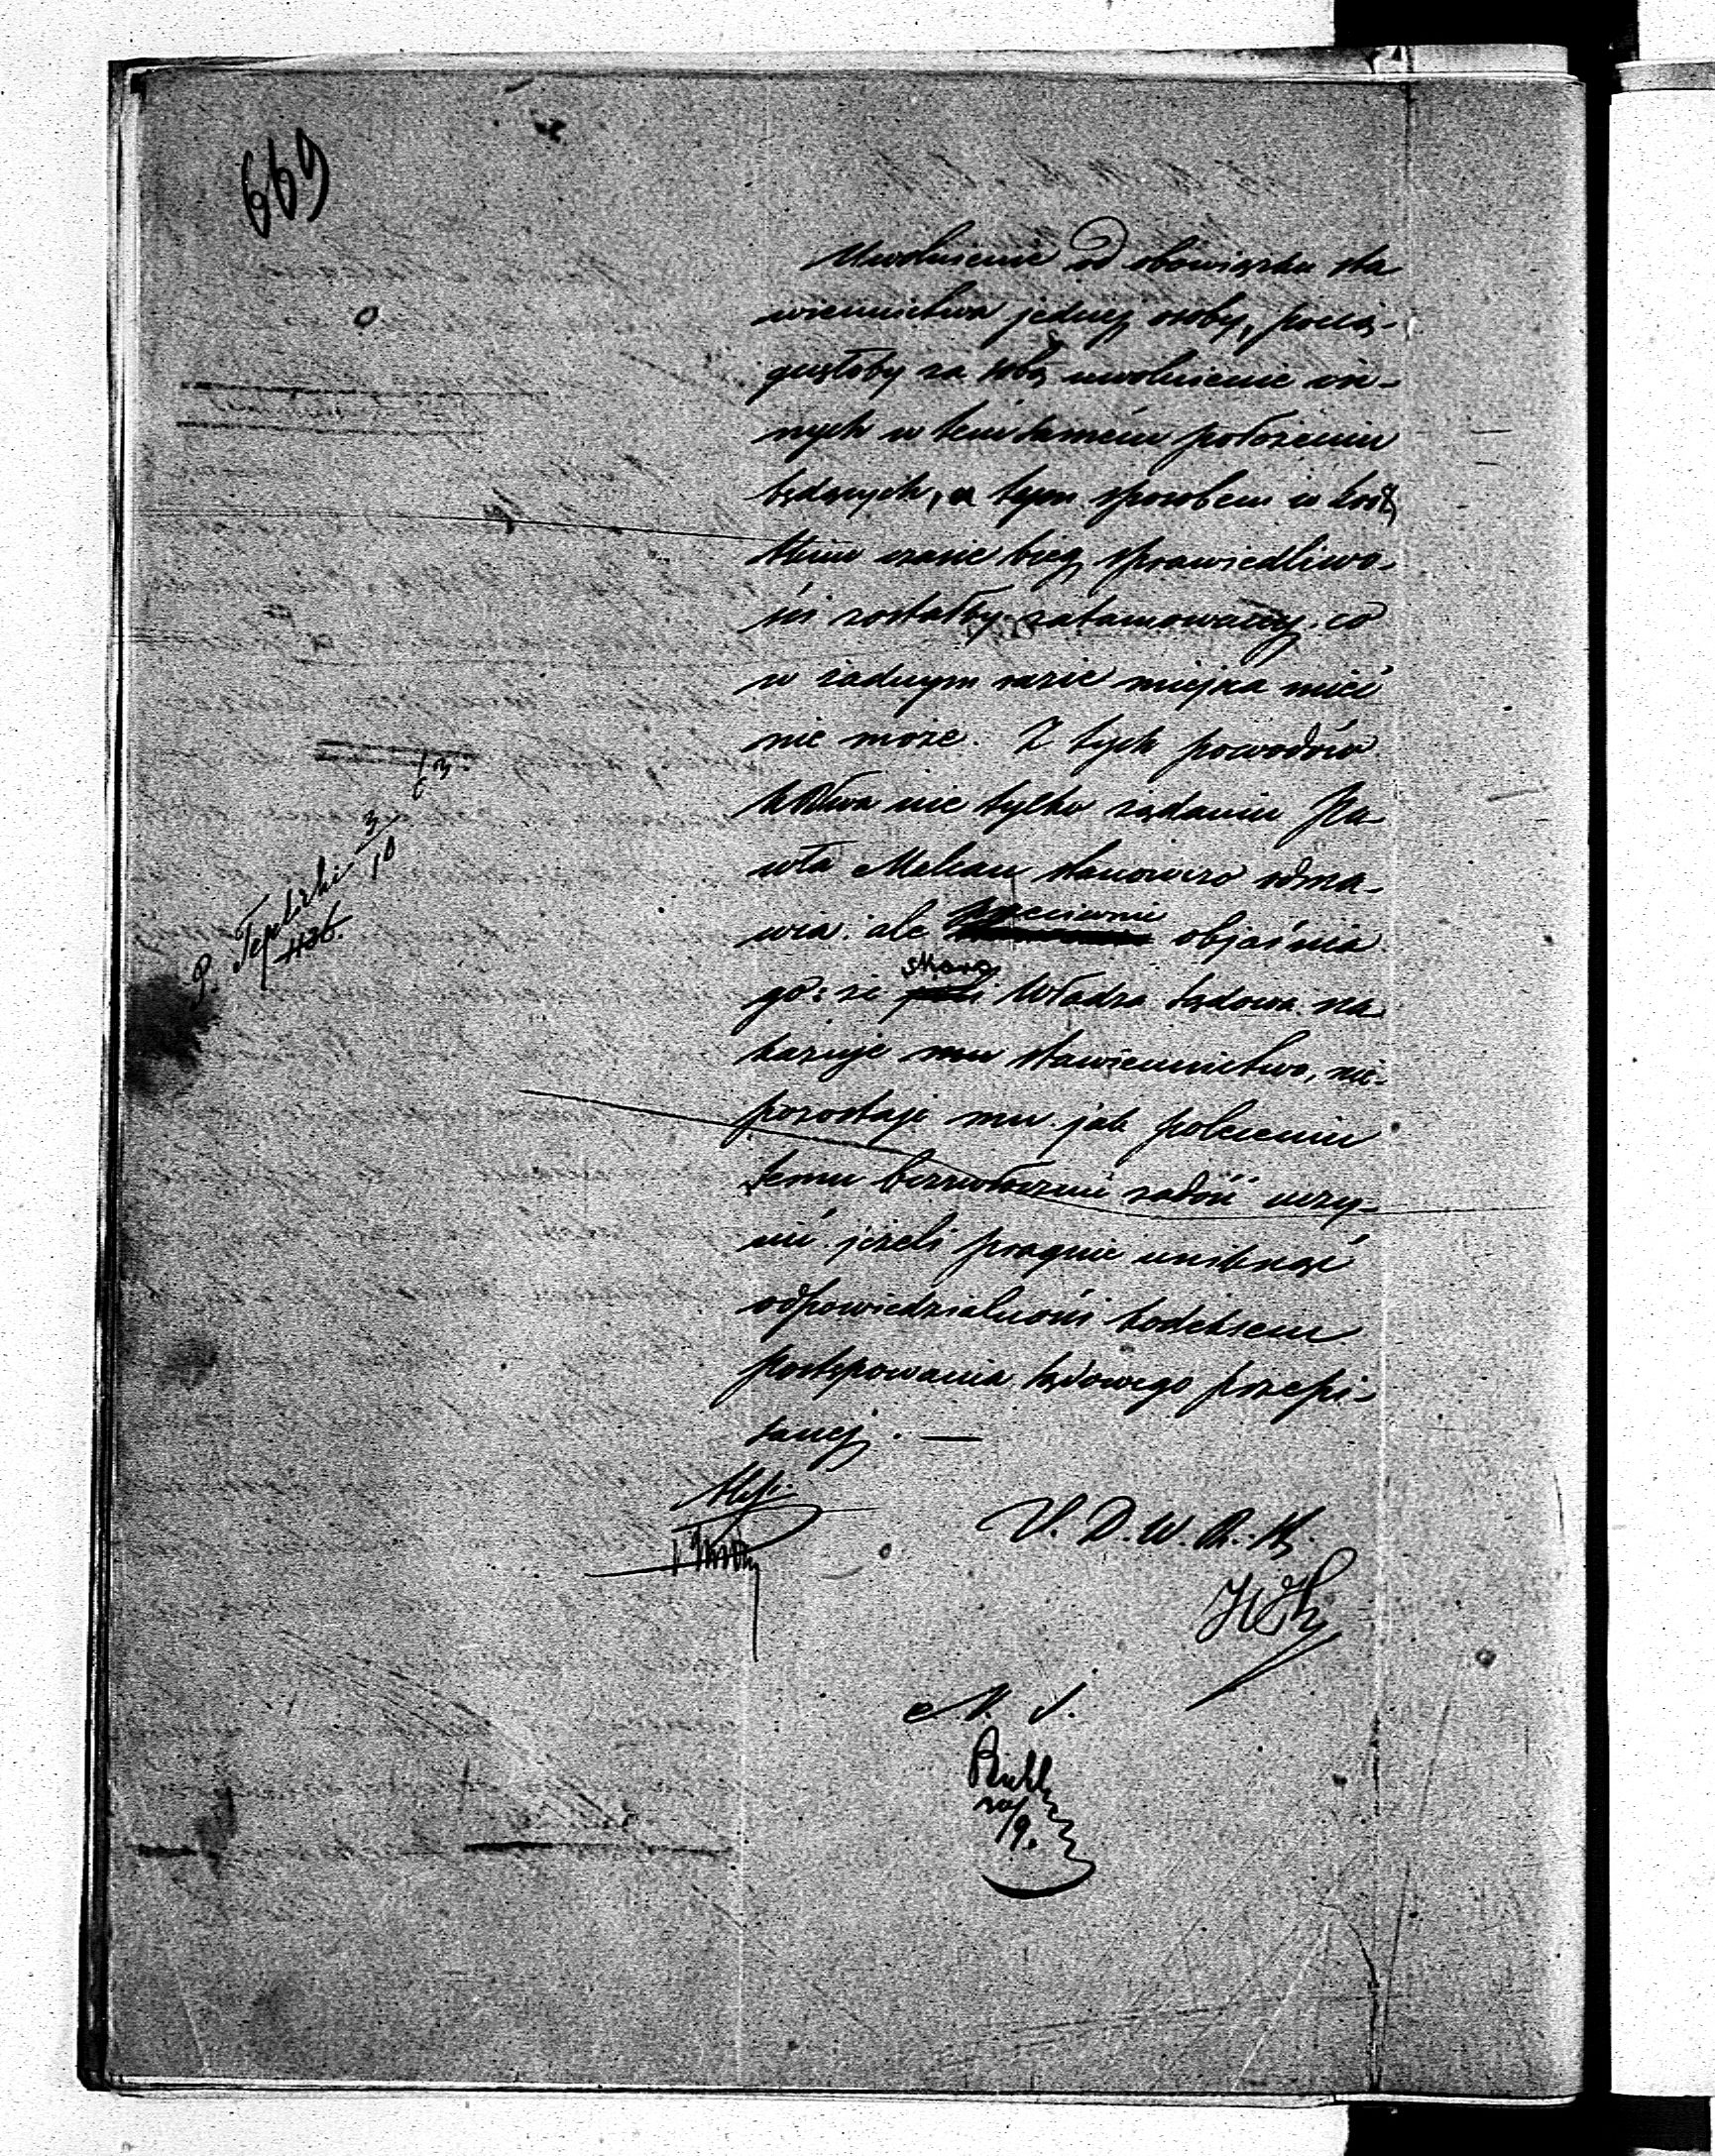 669
Uwolnienie od obowiązku sta
wiennictwa jednej osoby, pocią-
gnęłoby za sobą uwolnienie in-
nych w tem samem położeniu
będących, a tym sposobem w krót
kim czasie bieg sprawiedliwo-
ści zostałby zatamowany, co
w żadnym razie miejsca mieć
nie może. Z tych powodów
nie tylko żądaniu Pa-
wła Melcau stanowczo odma-
wia. ale przeciwnie objaśnia
go: że skoro Władza Sądowa na
kazuje mu stawiennictwo, nie-
pozostaje mu jak poleceniu
temu bezzwłocznie zadość uczy-
nić. jeżeli pragnie uniknąć
odpowiedzialności kodeksem
postępowania sądowego przepi-
sanej. —
P. 3/10 63
V. D. W. R. K.
N. S.